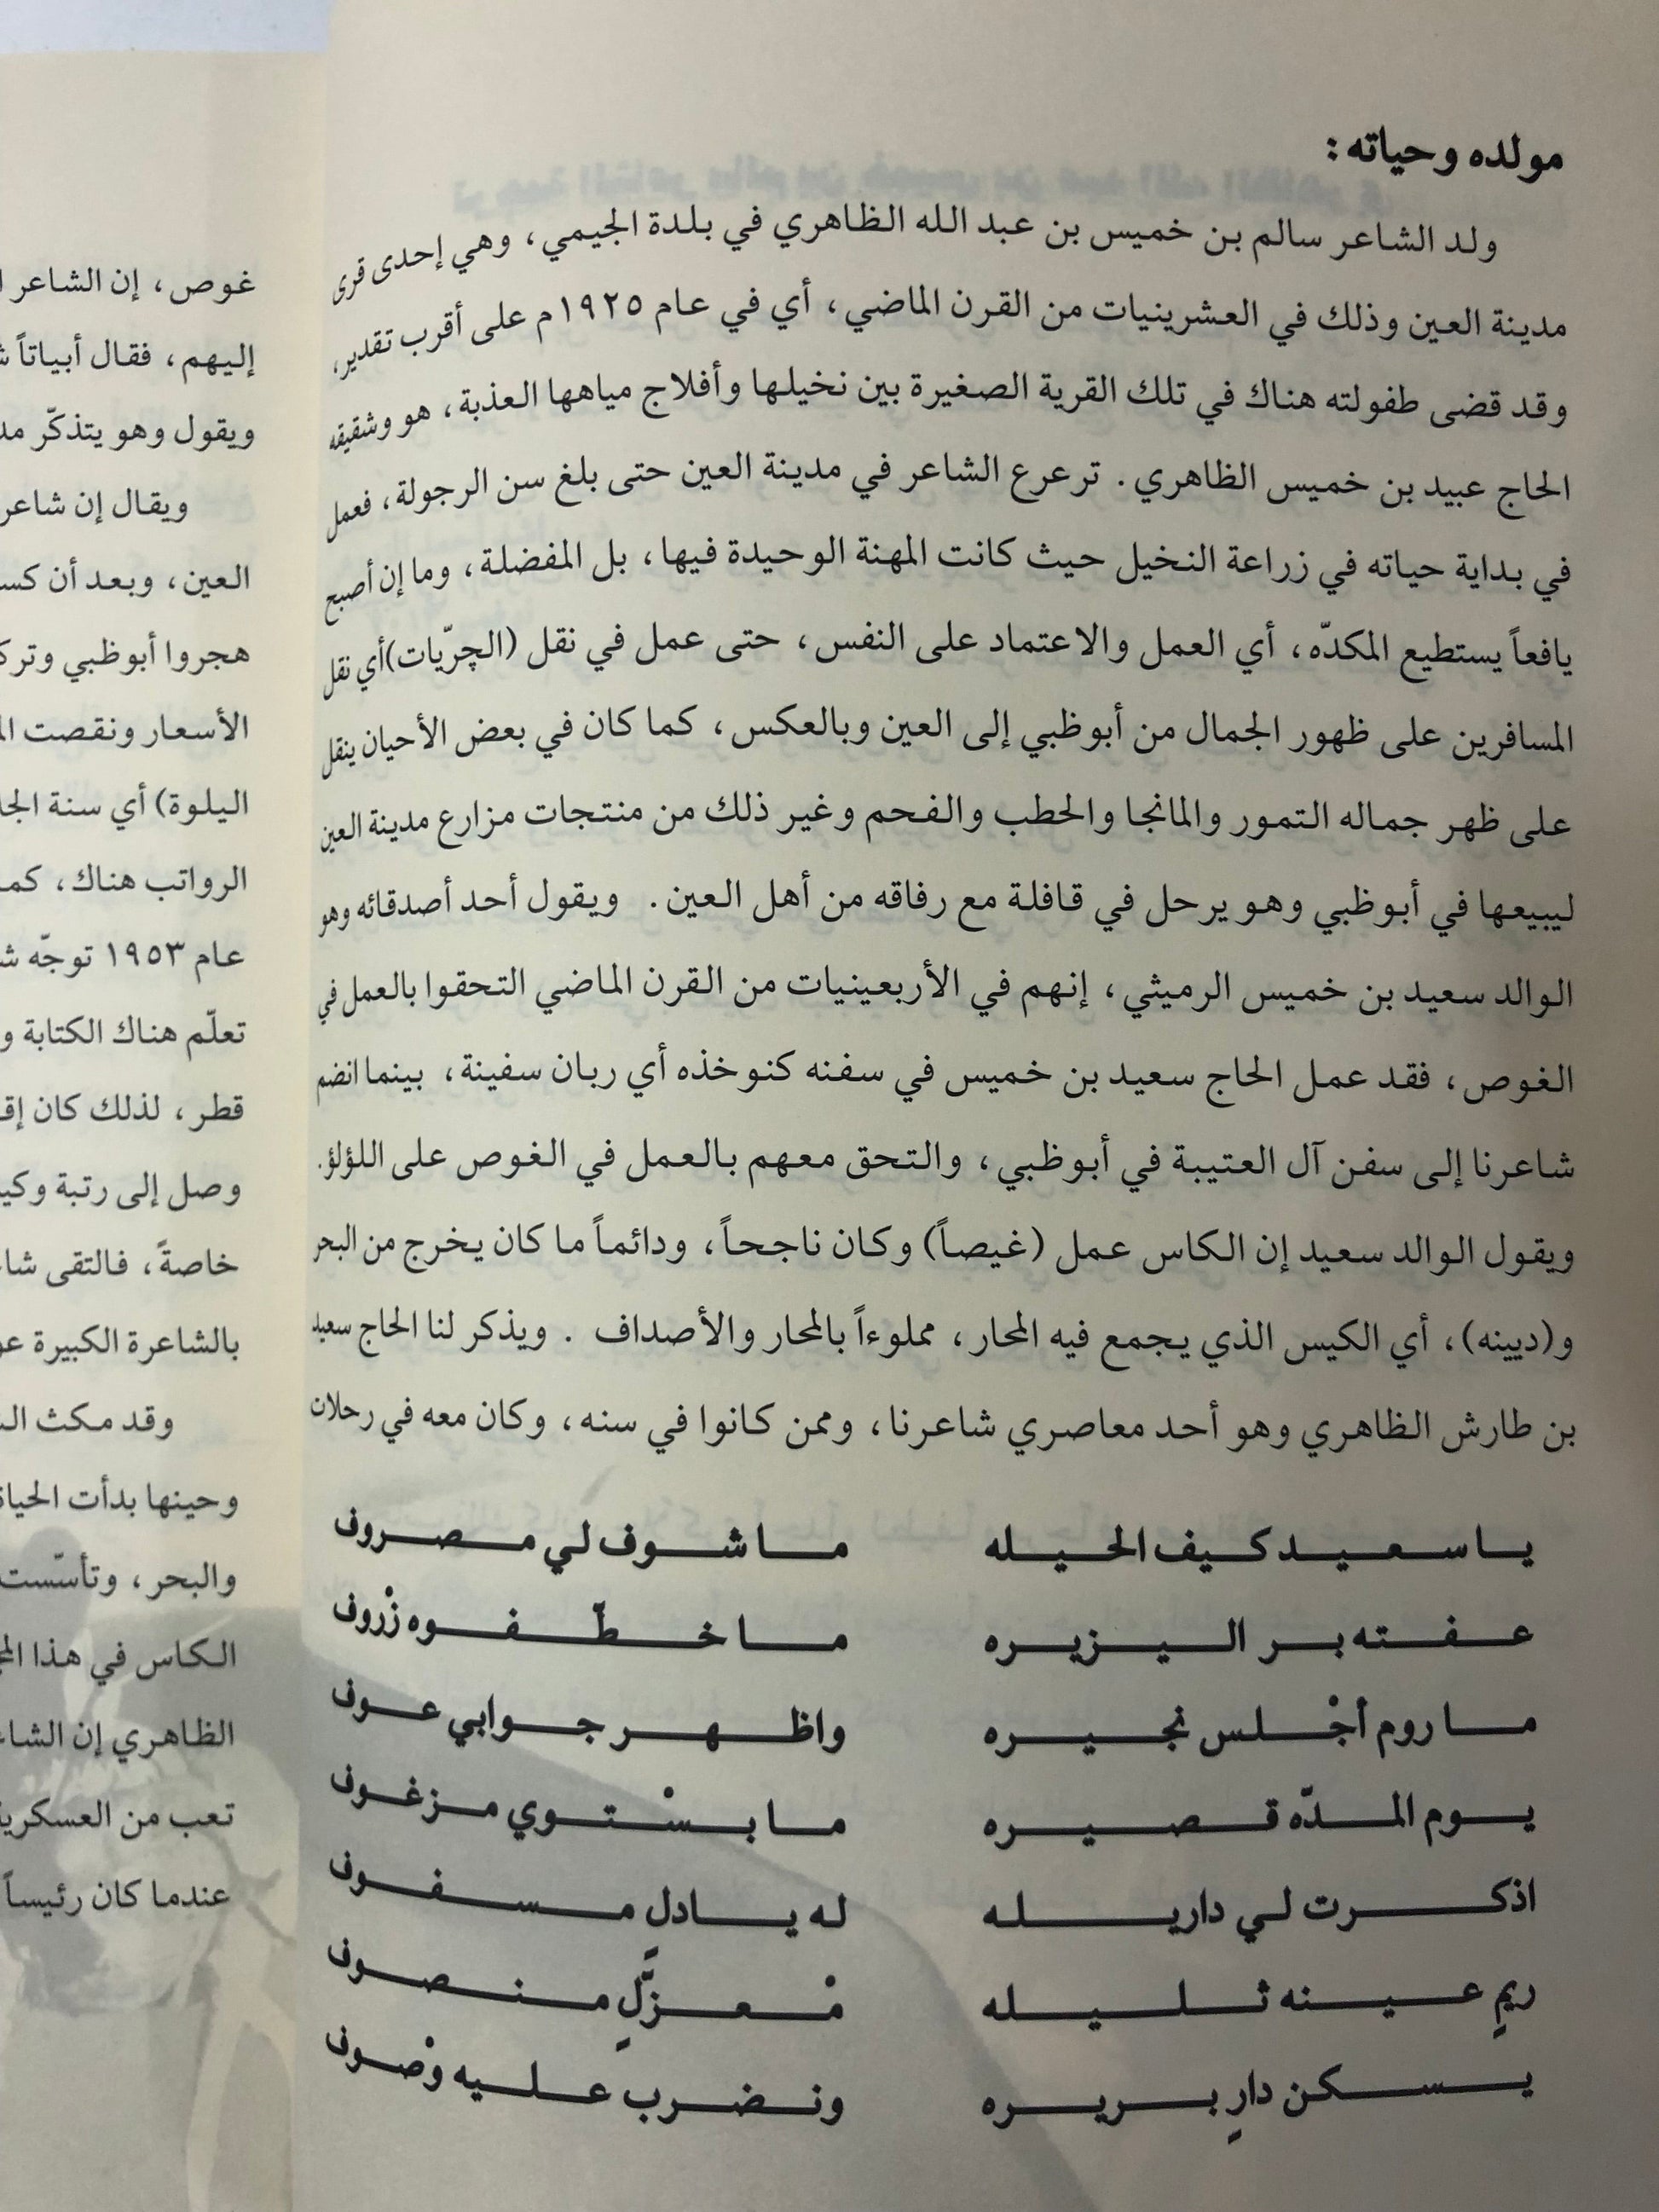 مولده وحياته:
ولد الشاعر سالم بن خميس بن عبد الله الظاهري في بلدة الجيمي، وهي إحدى قرى
مدينة العين وذلك في العشرينيات من القرن الماضي، أي في عام ١٩٢٥م على أقرب تقدير،
وقد قضى طفولته هناك في تلك القرية الصغيرة بين نخيلها وأفلاج مياهها العذبة، هو وشقيقه
الحاج عبيد بن خميس الظاهري. ترعرع الشاعر في مدينة العين حتى بلغ سن الرجولة، فعمل
في بداية حياته في زراعة النخيل حيث كانت المهنة الوحيدة فيها، بل المفضلة، وما إن أصبح
يافعاً يستطيع المكدّه، أي العمل والاعتماد على النفس، حتى عمل في نقل (الچرّيات) أي نقل
المسافرين على ظهور الجمال من أبوظبي إلى العين وبالعكس، كما كان في بعض الأحيان ينقل
على ظهر جماله التمور والمانجا والحطب والفحم وغير ذلك من منتجات مزارع مدينة العين
ليبيعها في أبوظبي وهو يرحل في قافلة مع رفاقه من أهل العين. ويقول أحد أصدقائه وهو
الوالد سعيد بن خميس الرميثي، إنهم في الأربعينيات من القرن الماضي التحقوا بالعمل في
الغوص، فقد عمل الحاج سعيد بن خميس في سفنه كنوخذه أي ربان سفينة، بينما انضم
شاعرنا إلى سفن آل العتيبة في أبوظبي، والتحق معهم بالعمل في الغوص على اللؤلؤ.
ويقول الوالد سعيد إن الكاس عمل (غيصاً) وكان ناجحاً، ودائماً ما كان يخرج من البحر
و(ديينه)، أي الكيس الذي يجمع فيه المحار، مملوءاً بالمحار والأصداف . ويذكر لنا الحاج سعيد
بن طارش الظاهري وهو أحد معاصري شاعرنا، وممن كانوا في سنه، وكان معه في رحلات
يا سعيد كيف الحيله ما شوف لي مصروف
عفته بر اليزيره ما خطّفوه زْروف
ما روم أجْلس نجيره واظهر جوابي عوف
يوم المدّه قصيره ما بسْتوي مزغوف
اذكرت لي داريله له يادلٍ مسفوف
ريمٍ عينه ثليله مْعزّلٍ منصوف
يسكن دارٍ بريره ونضرب عليه وْصوف
غوص، إن الشاعر
إليهم، فقال أبياتاً
ويقول وهو يتذكّر
ويقال إن شاعر
العين، وبعد أن
هجروا أبوظبي
الأسعار ونقصت
اليلوة) أي سنة
الرواتب هناك،
عام ١٩٥٣ توجّه
تعلّم هناك الكتابة
قطر، لذلك كان
وصل إلى رتبة
خاصةً، فالتقى
بالشاعرة الكبيرة
وقد مكث
وحينها بدأت
والبحر، وتأسّست
الكاس في هذا
الظاهري إن
تعب من
عندما كان رئيساً